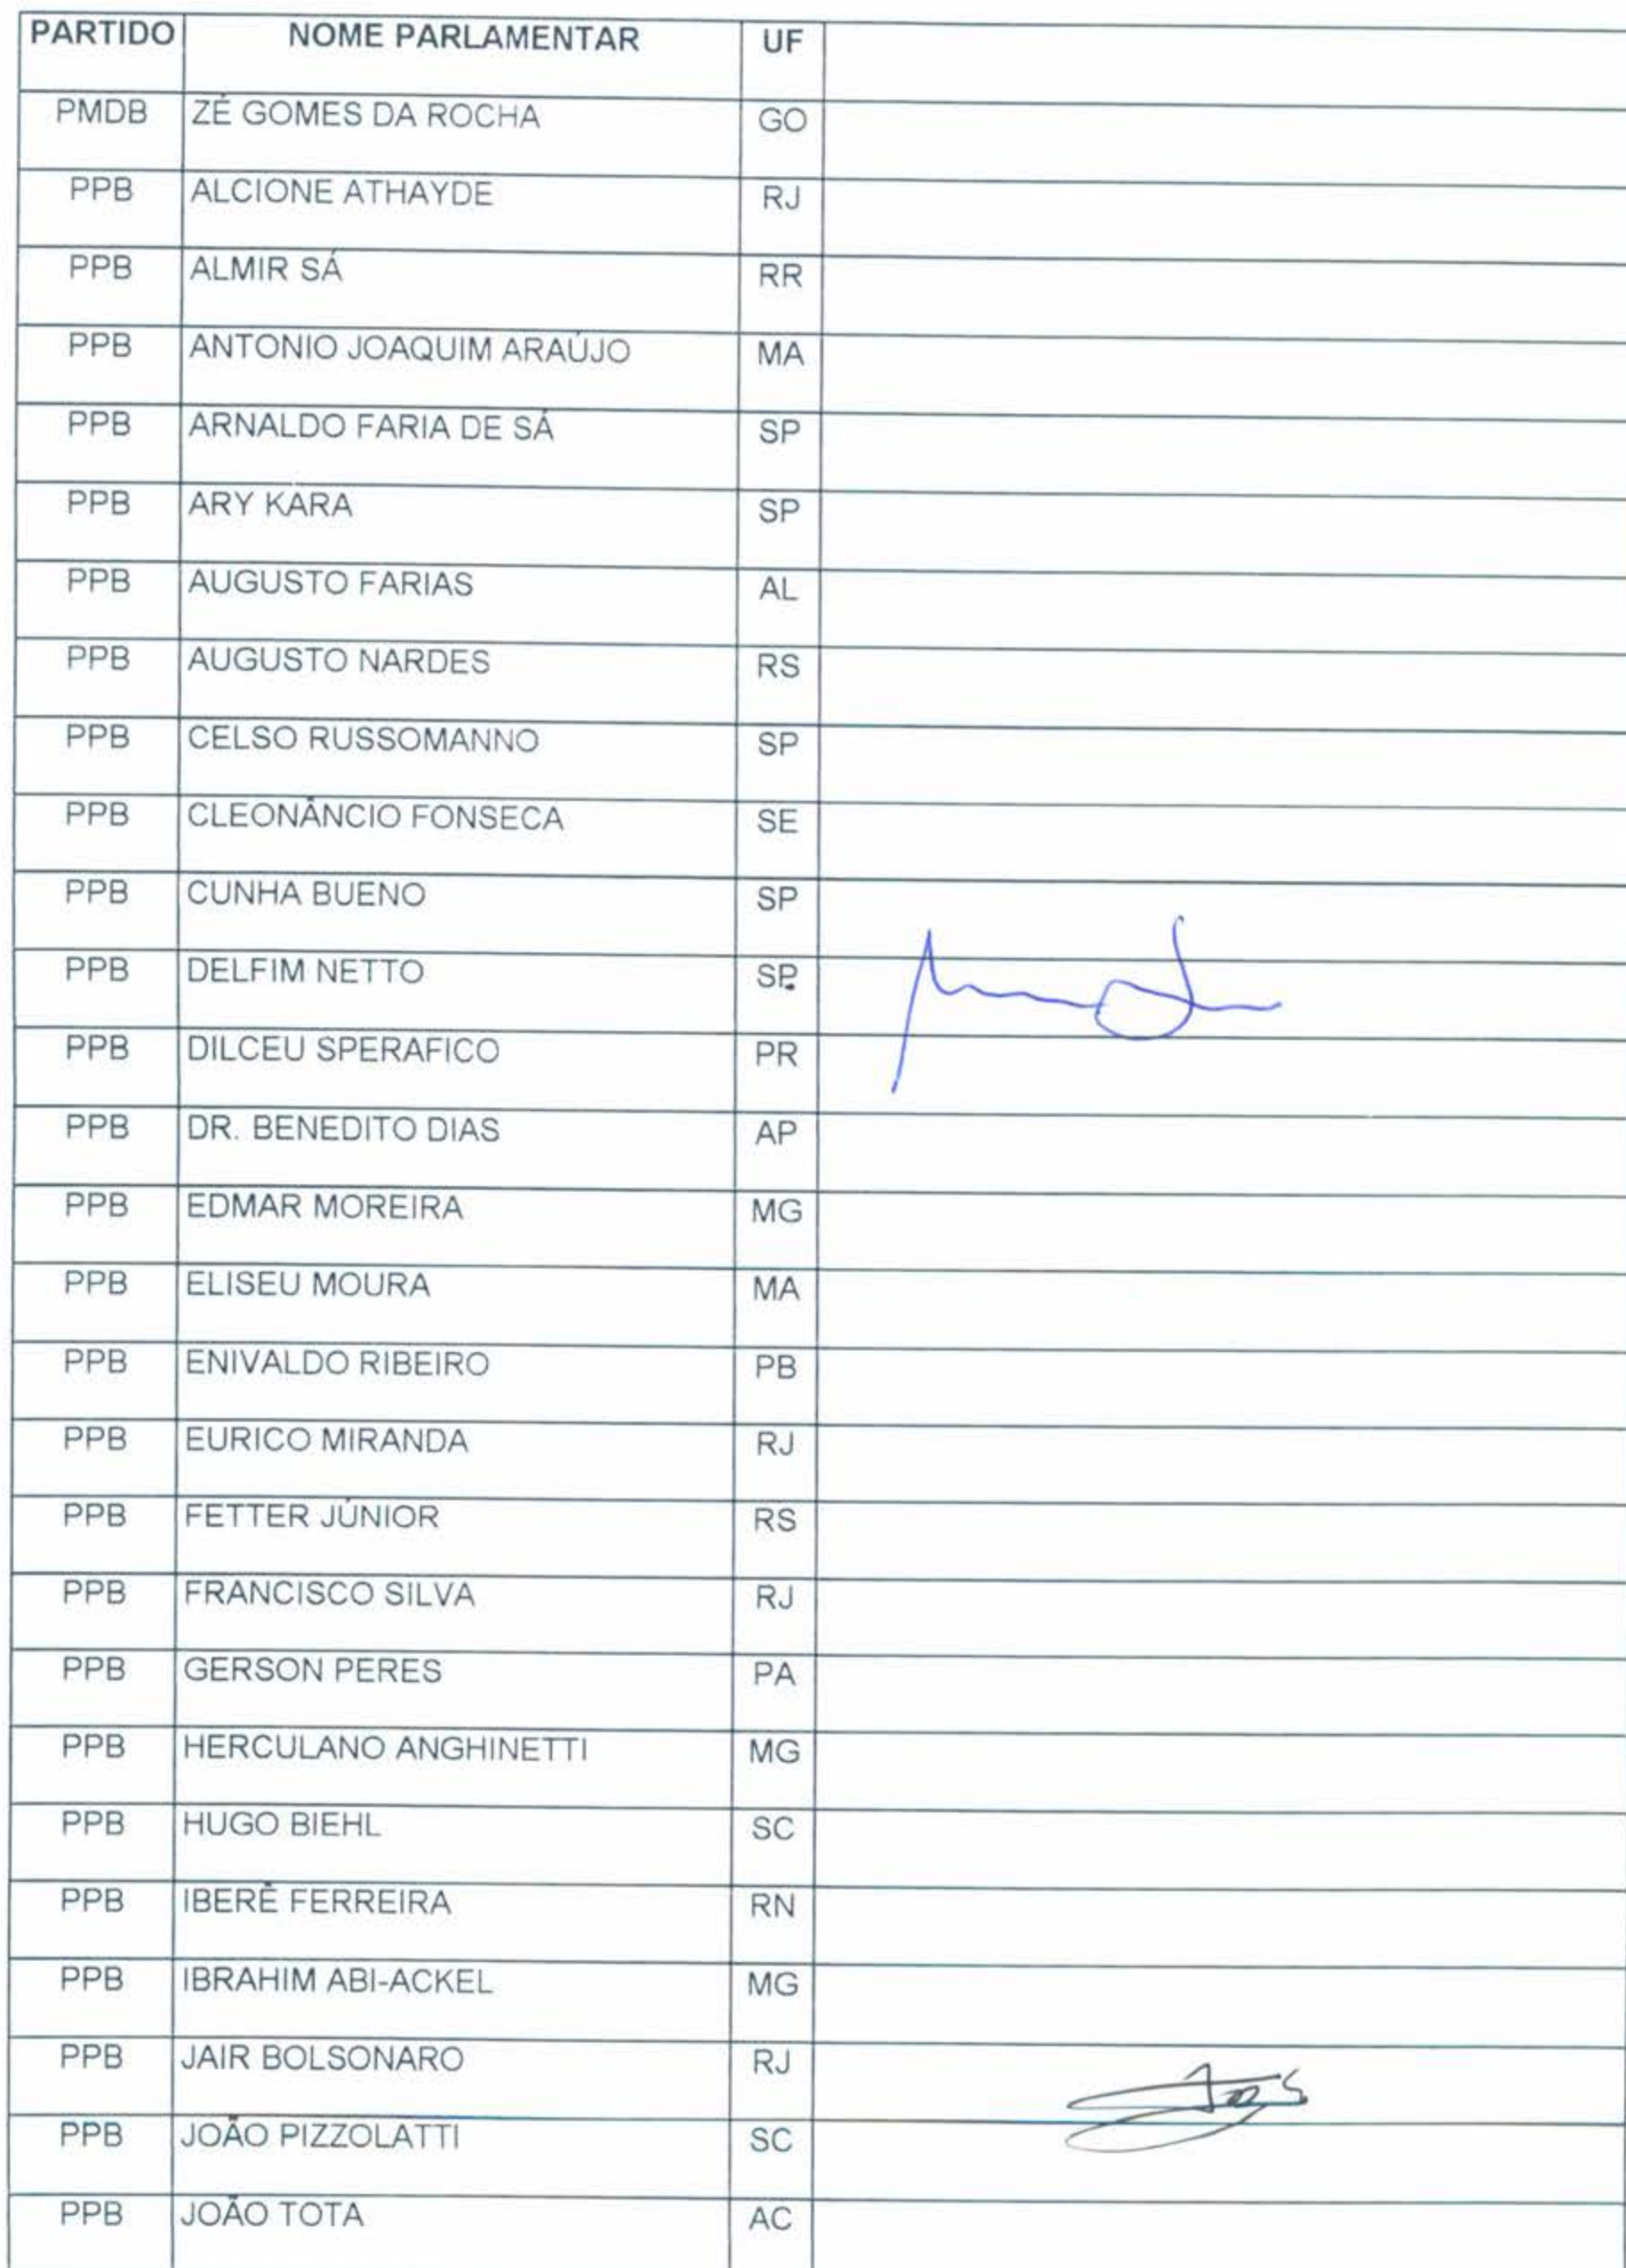 PARTIDO NOME PARLAMENTAR UF
PMDB ZÉ GOMES DA ROCHA GO
PPB ALCIONE ATHAYDE RJ
PPB ALMIR SÁ RR
PPB ANTONIO JOAQUIM ARAÚJO MA
PPB ARNALDO FARIA DE SÁ SP
PPB ARY KARA SP
PPB AUGUSTO FARIAS AL
PPB AUGUSTO NARDES RS
PPB CELSO RUSSOMANNO SP
PPB CLEONÂNCIO FONSECA SE
PPB CUNHA BUENO SP
PPB DELFIM NETTO SP
PPB DILCEU SPERAFICO PR
PPB DR. BENEDITO DIAS AP
PPB EDMAR MOREIRA MG
PPB ELISEU MOURA MA
PPB ENIVALDO RIBEIRO PB
PPB EURICO MIRANDA RJ
PPB FETTER JÚNIOR RS
PPB FRANCISCO SILVA RJ
PPB GERSON PERES PA
PPB HERCULANO ANGHINETTI MG
PPB HUGO BIEHL SC
PPB IBERÊ FERREIRA RN
PPB IBRAHIM ABI-ACKEL MG
PPB JAIR BOLSONARO RJ
PPB JOÃO PIZZOLATTI SC
PPB JOÃO TOTA AC